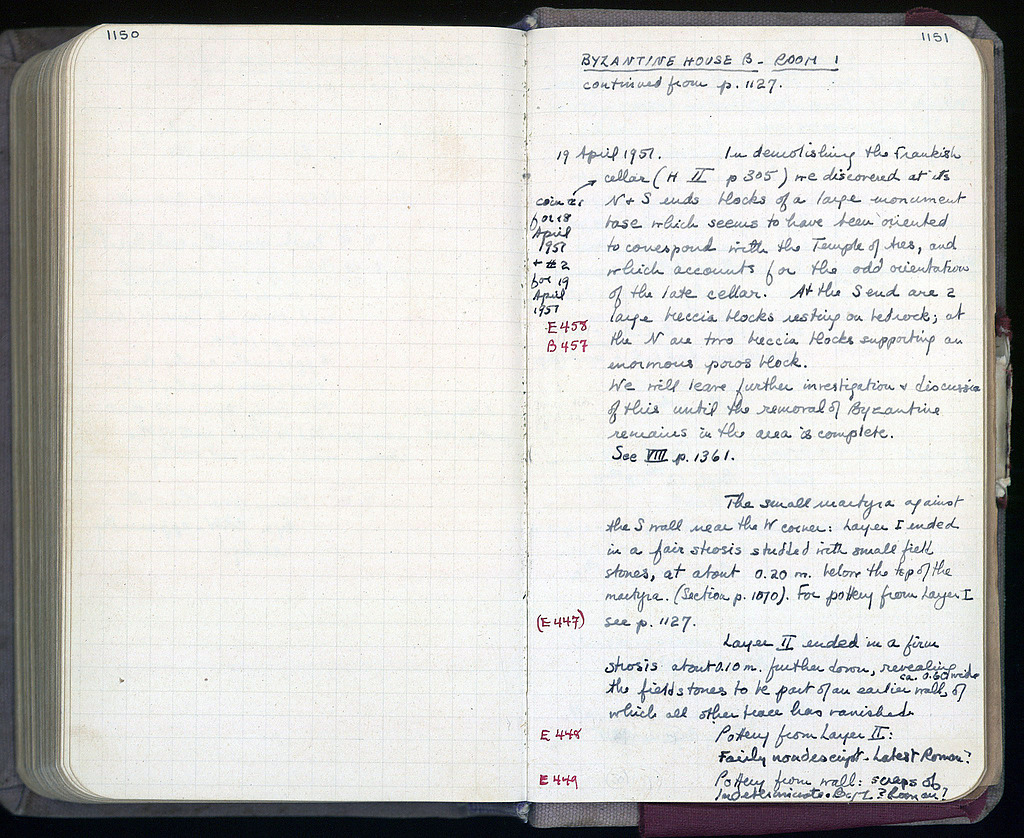 1150
1151
BYZANTINE HOUSE B - ROOM 1
continued from p. 1127.
19 April 1951. In demolishing the Frankish
cellar (H II p 305) we discovered at its
N + S ends blocks of a large monument
base which seems to have been oriented
to correspond with the Temple of Ares, and
which accounts for the odd orientation
of the late cellar. At the S end are 2
large breccia blocks resting on bedrock; at
the N are two breccia blocks supporting an
enormous poros block.
We will leave further investigation + discussion
of this until the removal of Byzantine
remains in the area is complete.
See VIII p. 1361.
coin #1
for 18
April
1951
+ #2
for 19
April
1951
E 458
B 457
The small martyra against
the S wall near the W corner: Layer I ended
in a fair strosis studded with small field
stones, at about 0.20 m. below the top of the
martyra. (Section p. 1070). For pottery from Layer I
(E 447) see p. 1127.
Layer II ended in a firm
strosis about 0.10 m. further down, revealing
ca. 0.60 wide
the fieldstones to be part of an earlier wall, of
which all other trace has vanished.
E 448 Pottery from Layer II:
Fairly nondescript - Latest Roman?
E 449 Pottery from wall: scraps of
indeterminate. Byz? Roman?